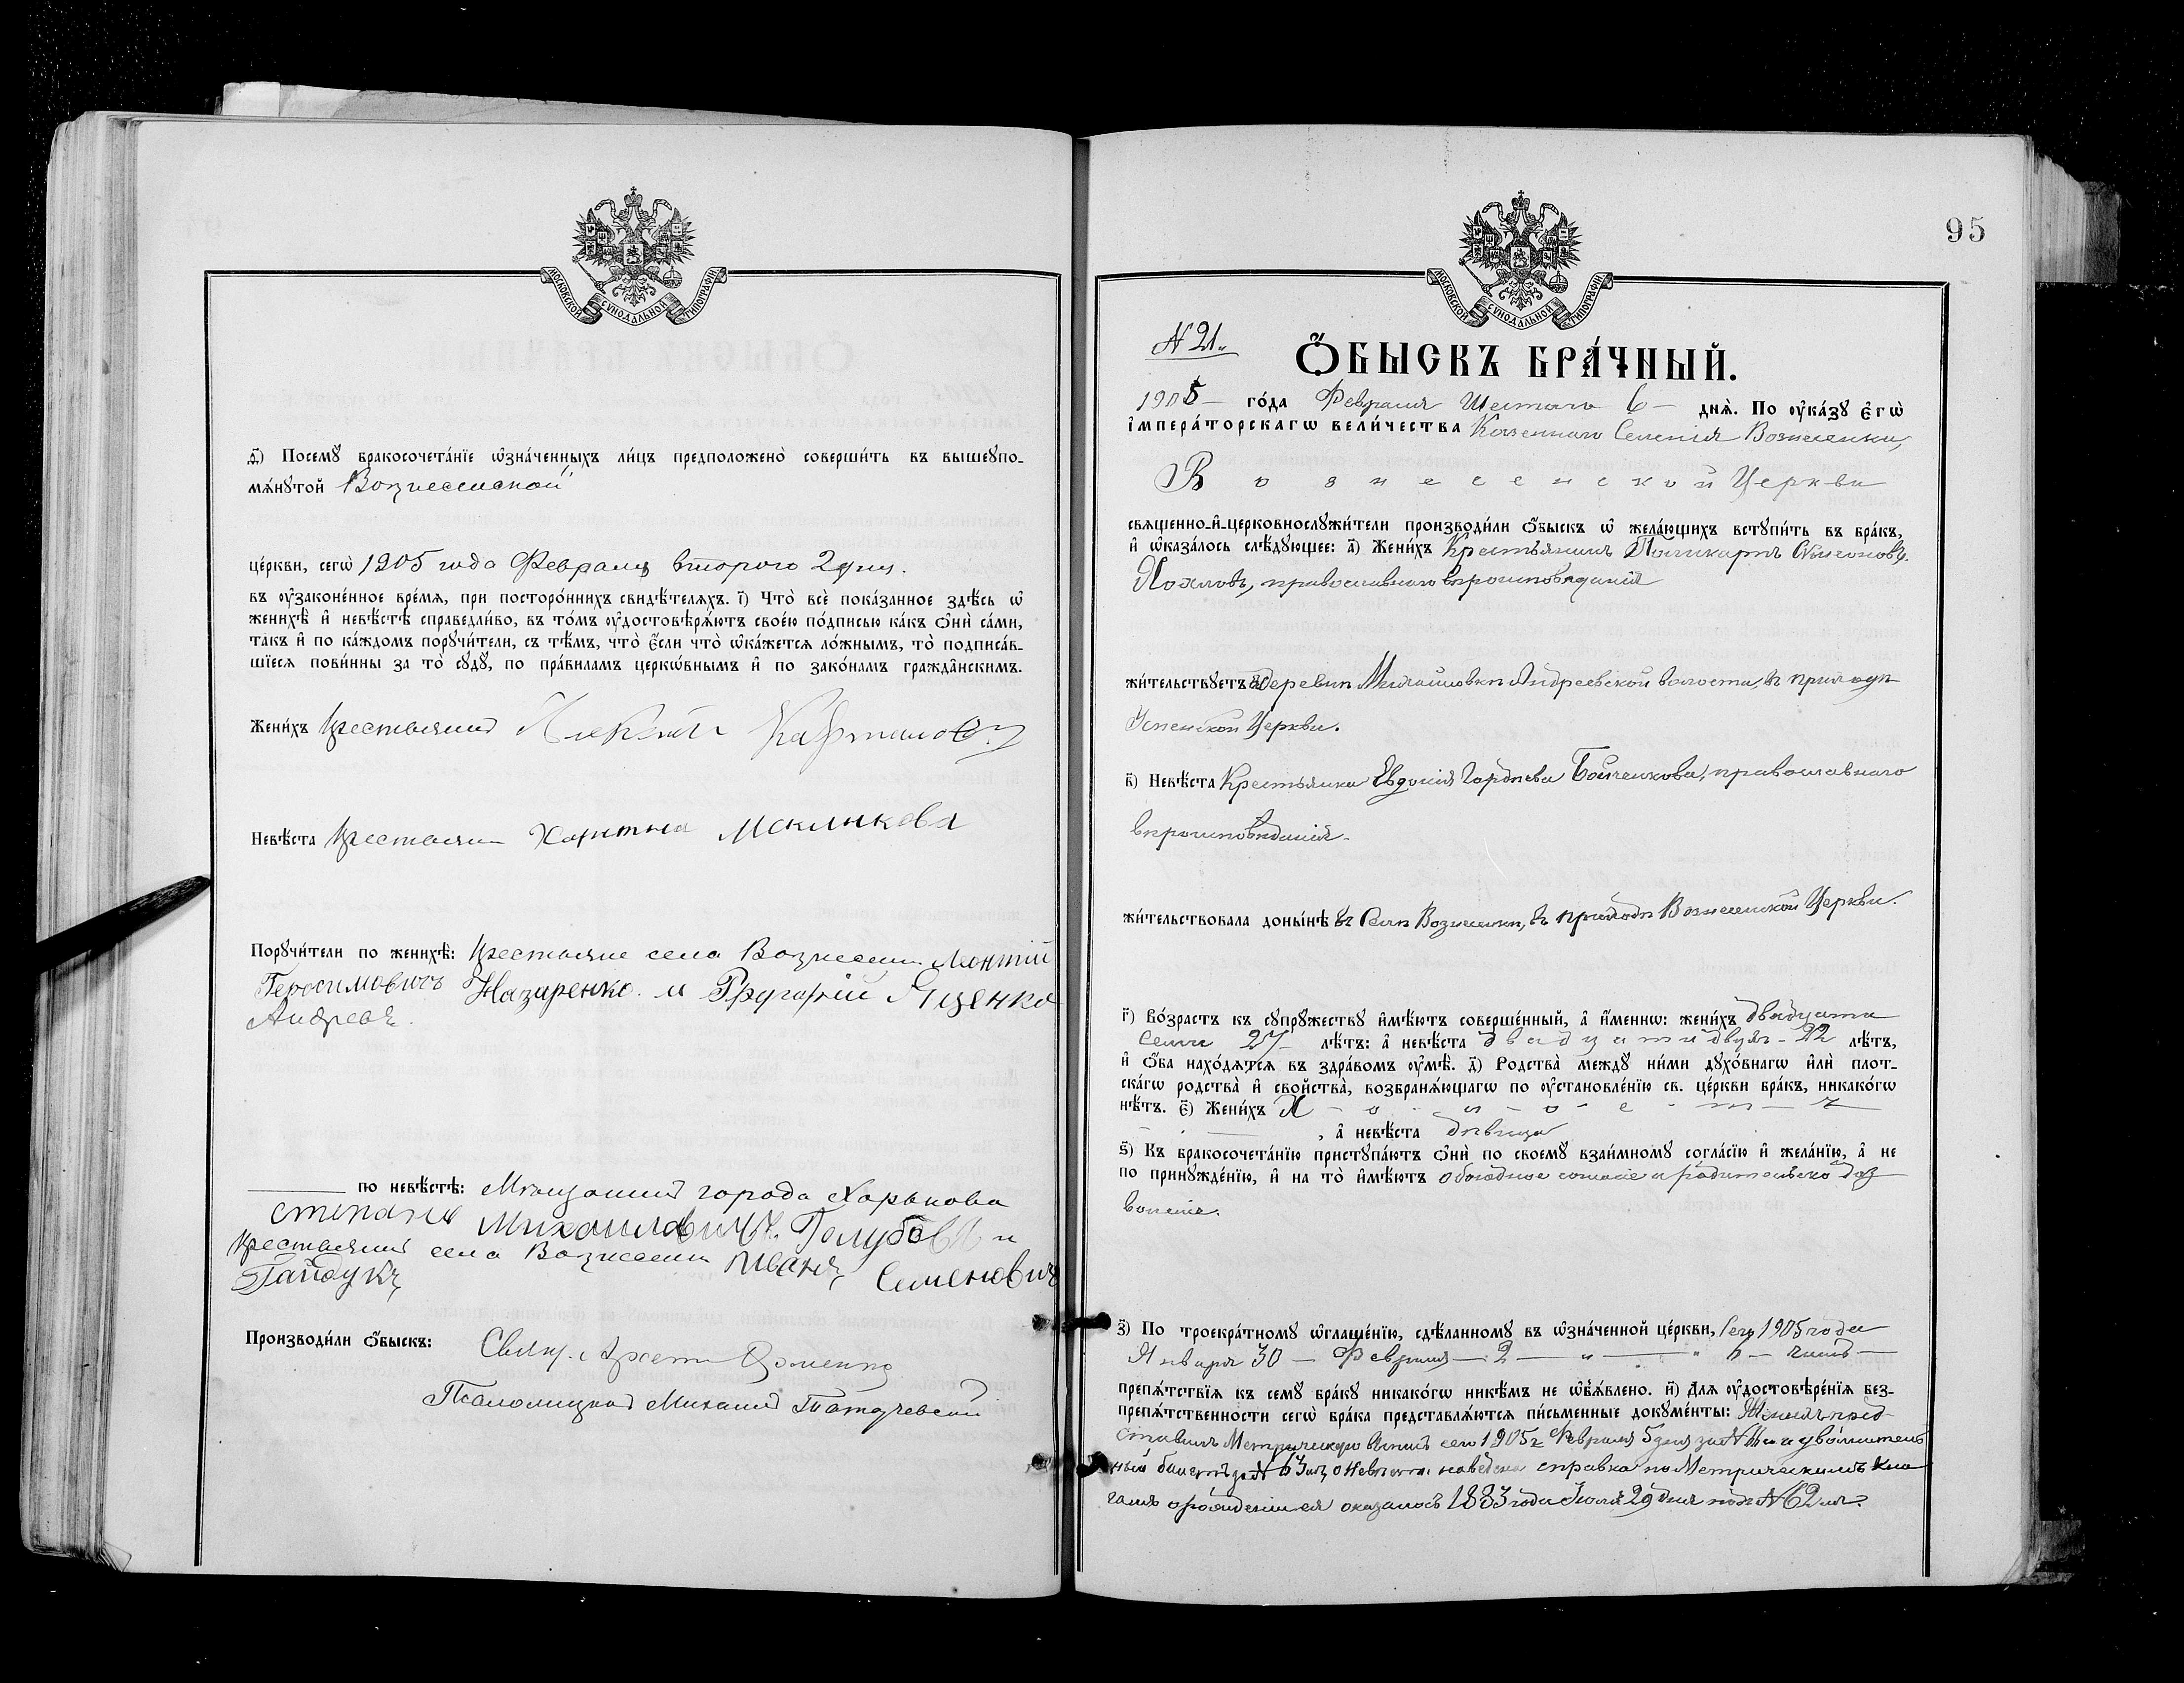 МОСКОВСКОЙ СѴНОДАЛЬНОЙ ТИПОГРАФІИ
д҃і) Посемꙋ бракосочета́нїе ѡ҆зна́ченныхъ ли́цъ предположено̀ соверши́ть въ вышеꙋпо-
мѧ́нꙋтой Вознесенской
це́ркви, сегѡ̀ 1905 года Февраля второго 2 дня.
въ ᲂу҆законе́нное вре́мѧ, при посторо́ннихъ свидѣ́телѧхъ. і҃) Что̀ всѐ пока́занное здѣ́сь ѡ҆
женихѣ̀ и҆ невѣ́стѣ справедли́во, въ то́мъ ᲂу҆достовѣрѧ́ютъ свое́ю по́дписью ка́къ ѻ҆нѝ са́ми,
та́къ и҆ по ка́ждомъ порꙋчи́тели, съ тѣ́мъ, что̀ є҆́сли что̀ ѡ҆ка́жетсѧ ло́жнымъ, то̀ подписа́в-
шїесѧ пови́нны за то̀ сꙋдꙋ̀, по пра́виламъ церкѡ́внымъ и҆ по зако́намъ гражда̂нскимъ.
Жени́хъ крестьянинъ Кафтановъ
Невѣ́ста крестьян Харитина
Порꙋчи́тели по женихѣ̀: крестьяне села Вознесенки Леонтій
Герасимовичъ Назаренко. и Григорій Яценко
Андреевъ.
по невѣ́стѣ: Мѣщанинъ города Харькова
Степанъ Михаиловичъ Голубовъ и
крестьянинъ села Вознесенки Иванъ Семеновичъ
Гайдукъ
Производи́ли ѻ҆́быскъ: Свящ.
Псаломщикъ Михаилъ
95
МОСКОВСКОЙ СѴНОДАЛЬНОЙ ТИПОГРАФІИ
N 21.
Ѻ҆́БЫСКЪ БРА́ЧНЫЙ.
1905 – го́да Февраля Шестого 6 – днѧ̀. По ᲂу҆ка́зꙋ є҆гѡ̀
і҆мпера́торскагѡ вели́чества Казеннаго Селенія Вознесенки,
Вознесенской Церкви
свѧще́нно-и҆-церковнослꙋжи́тели производи́ли ѻ҆́быскъ ѡ҆ жела́ющихъ встꙋпи́ть въ бра́къ,
и҆ ѡ҆каза́лось слѣ́дꙋющее: а҃) Жени́хъ Крестьянинъ Поликарпъ Симеоновъ
Хохловъ, православнаго вѣроисповѣданія
жи́тельствꙋетъ въ деревнѣ Михайловкѣ Андреевской волости, въ приходѣ
Успенской Церкви.
в҃) Невѣ́ста Крестьянка Евдокія Гордѣева Бойченкова, православнаго
вѣроисповѣданія.
жи́тельствовала доны́нѣ въ Селѣ Вознесенкѣ, въ приходѣ Вознесенской Церкви.
г҃) Во́зрастъ къ сꙋпрꙋ́жествꙋ и҆мѣ́ютъ соверше́нный, а҆ и҆́меннѡ: жени́хъ двадцати
семи 27 – лѣ́тъ: а҆ невѣ́ста двадцати двухъ – 22 лѣ́тъ,
и҆ ѻ҆́ба нахо́дѧтсѧ въ здра́вомъ ᲂу҆мѣ̀. д҃) Родства̀ междꙋ̀ ни́ми дꙋхо́внагѡ и҆лѝ плот-
ска́гѡ родства̀ и҆ сво́йства̀, возбранѧ́ющагѡ по ᲂу҆становле́нїю св. це́ркви бра́къ, никако́гѡ
нѣ́тъ. є҃) Жени́хъ Холостъ
, а҆ невѣ́ста дѣвица
ѕ҃) Къ бракосочета́нїю пристꙋпа́ютъ ѻ҆нѝ по своемꙋ̀ взаи́мномꙋ согла́сїю и҆ жела́нїю, а҆ не
по принꙋжде́нїю, и҆ на то̀ и҆мѣ́ютъ обоюдное согласіе и родительско доз
воленіе.
з҃) По троекра́тномꙋ ѡ҆глаше́нїю, сдѣ́ланномꙋ въ ѡ҆зна́ченной це́ркви, сего 1905 года
Января 30 – Февраля – 2 – „ – „ 6 – числъ –
препѧ́тствїѧ къ семꙋ̀ бра́кꙋ никако́гѡ никѣ́мъ не ѡ҆б̾ѧ́влено. и҃) Длѧ̀ ᲂу҆достовѣре́нїѧ без-
препѧ́тственности сегѡ̀ бра́ка представлѧ́ютсѧ пи́сьменные докꙋме́нты: Женихъ пред
ставилъ Метрическую выпись сего 1905 г. Февраля 5 дня за N и увольнитель
ный билетъ за N 63 о Невѣстѣ наведена справка по Метрическимъ кни
гамъ о рожденіи ея оказалось 1883 года Іюля 29 дня подъ N 62